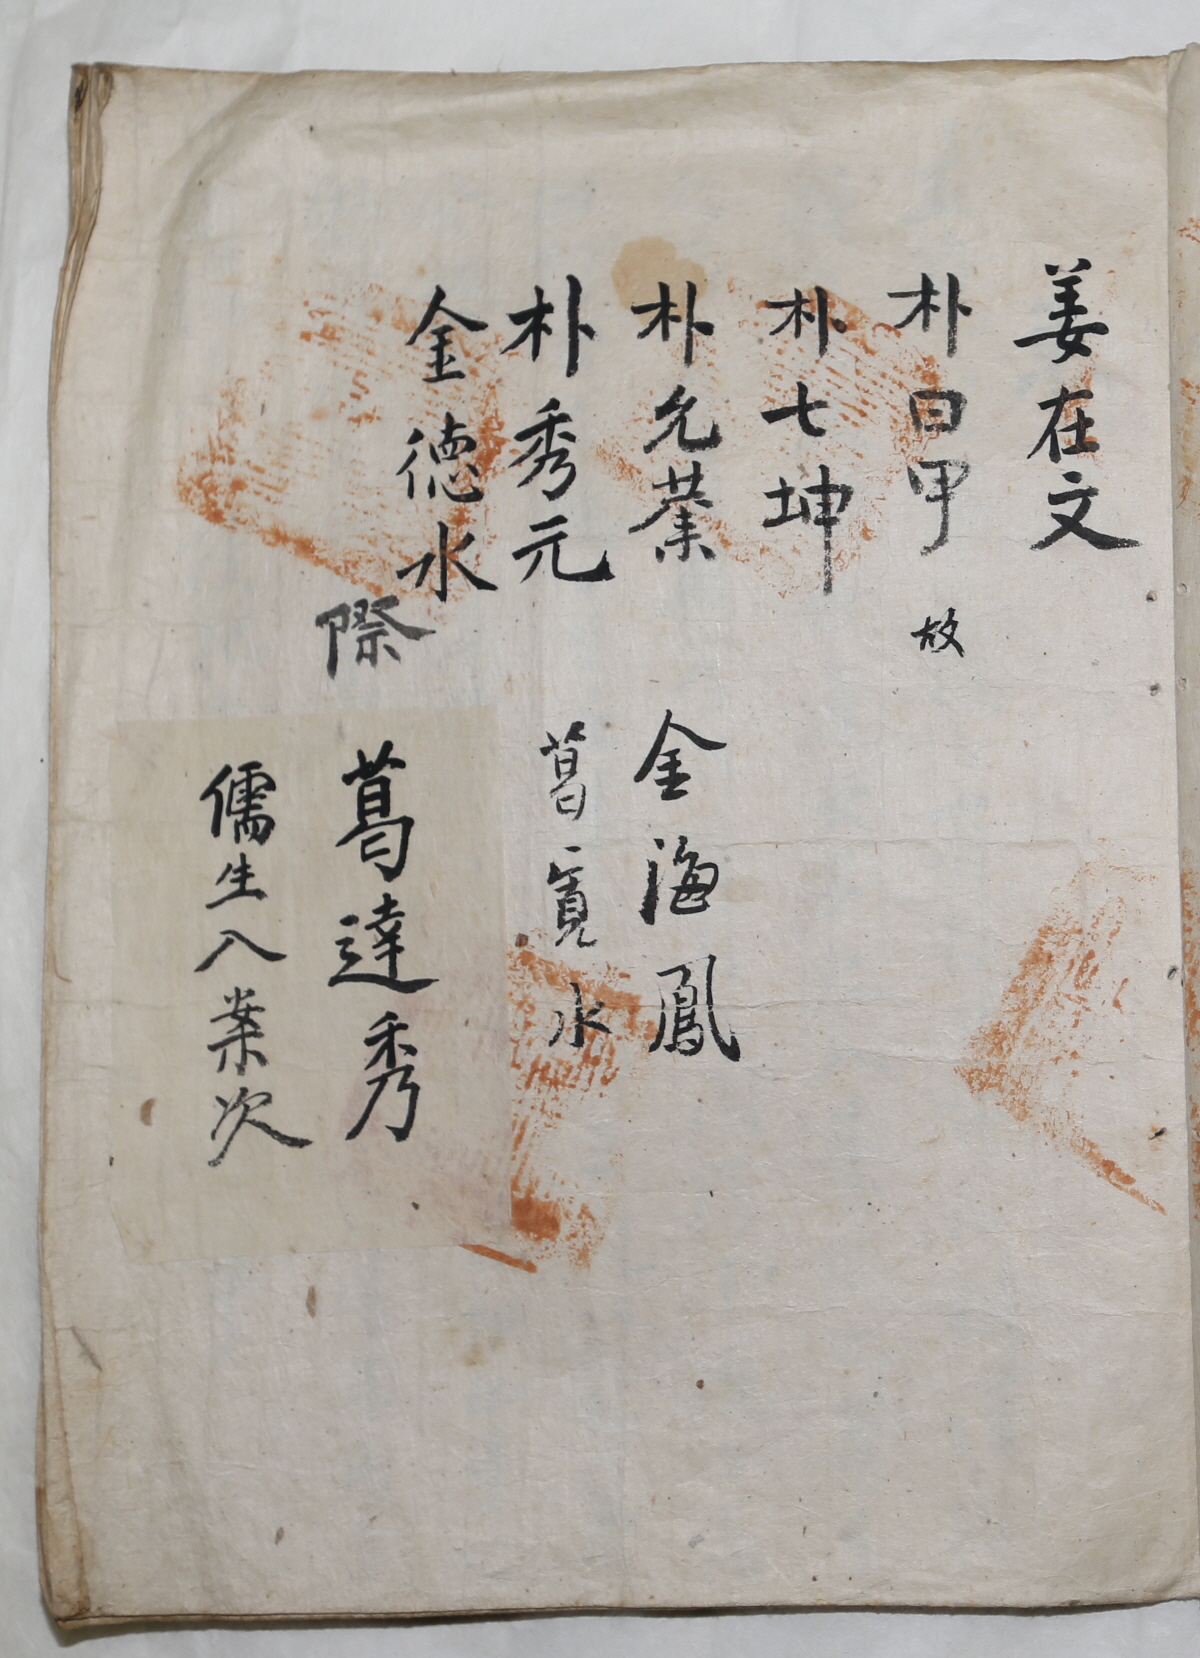 姜在文
朴曰甲 故
朴七坤
朴允業
金海鳳
朴秀元
葛寛水
金德水
際
葛達秀
儒生入案次